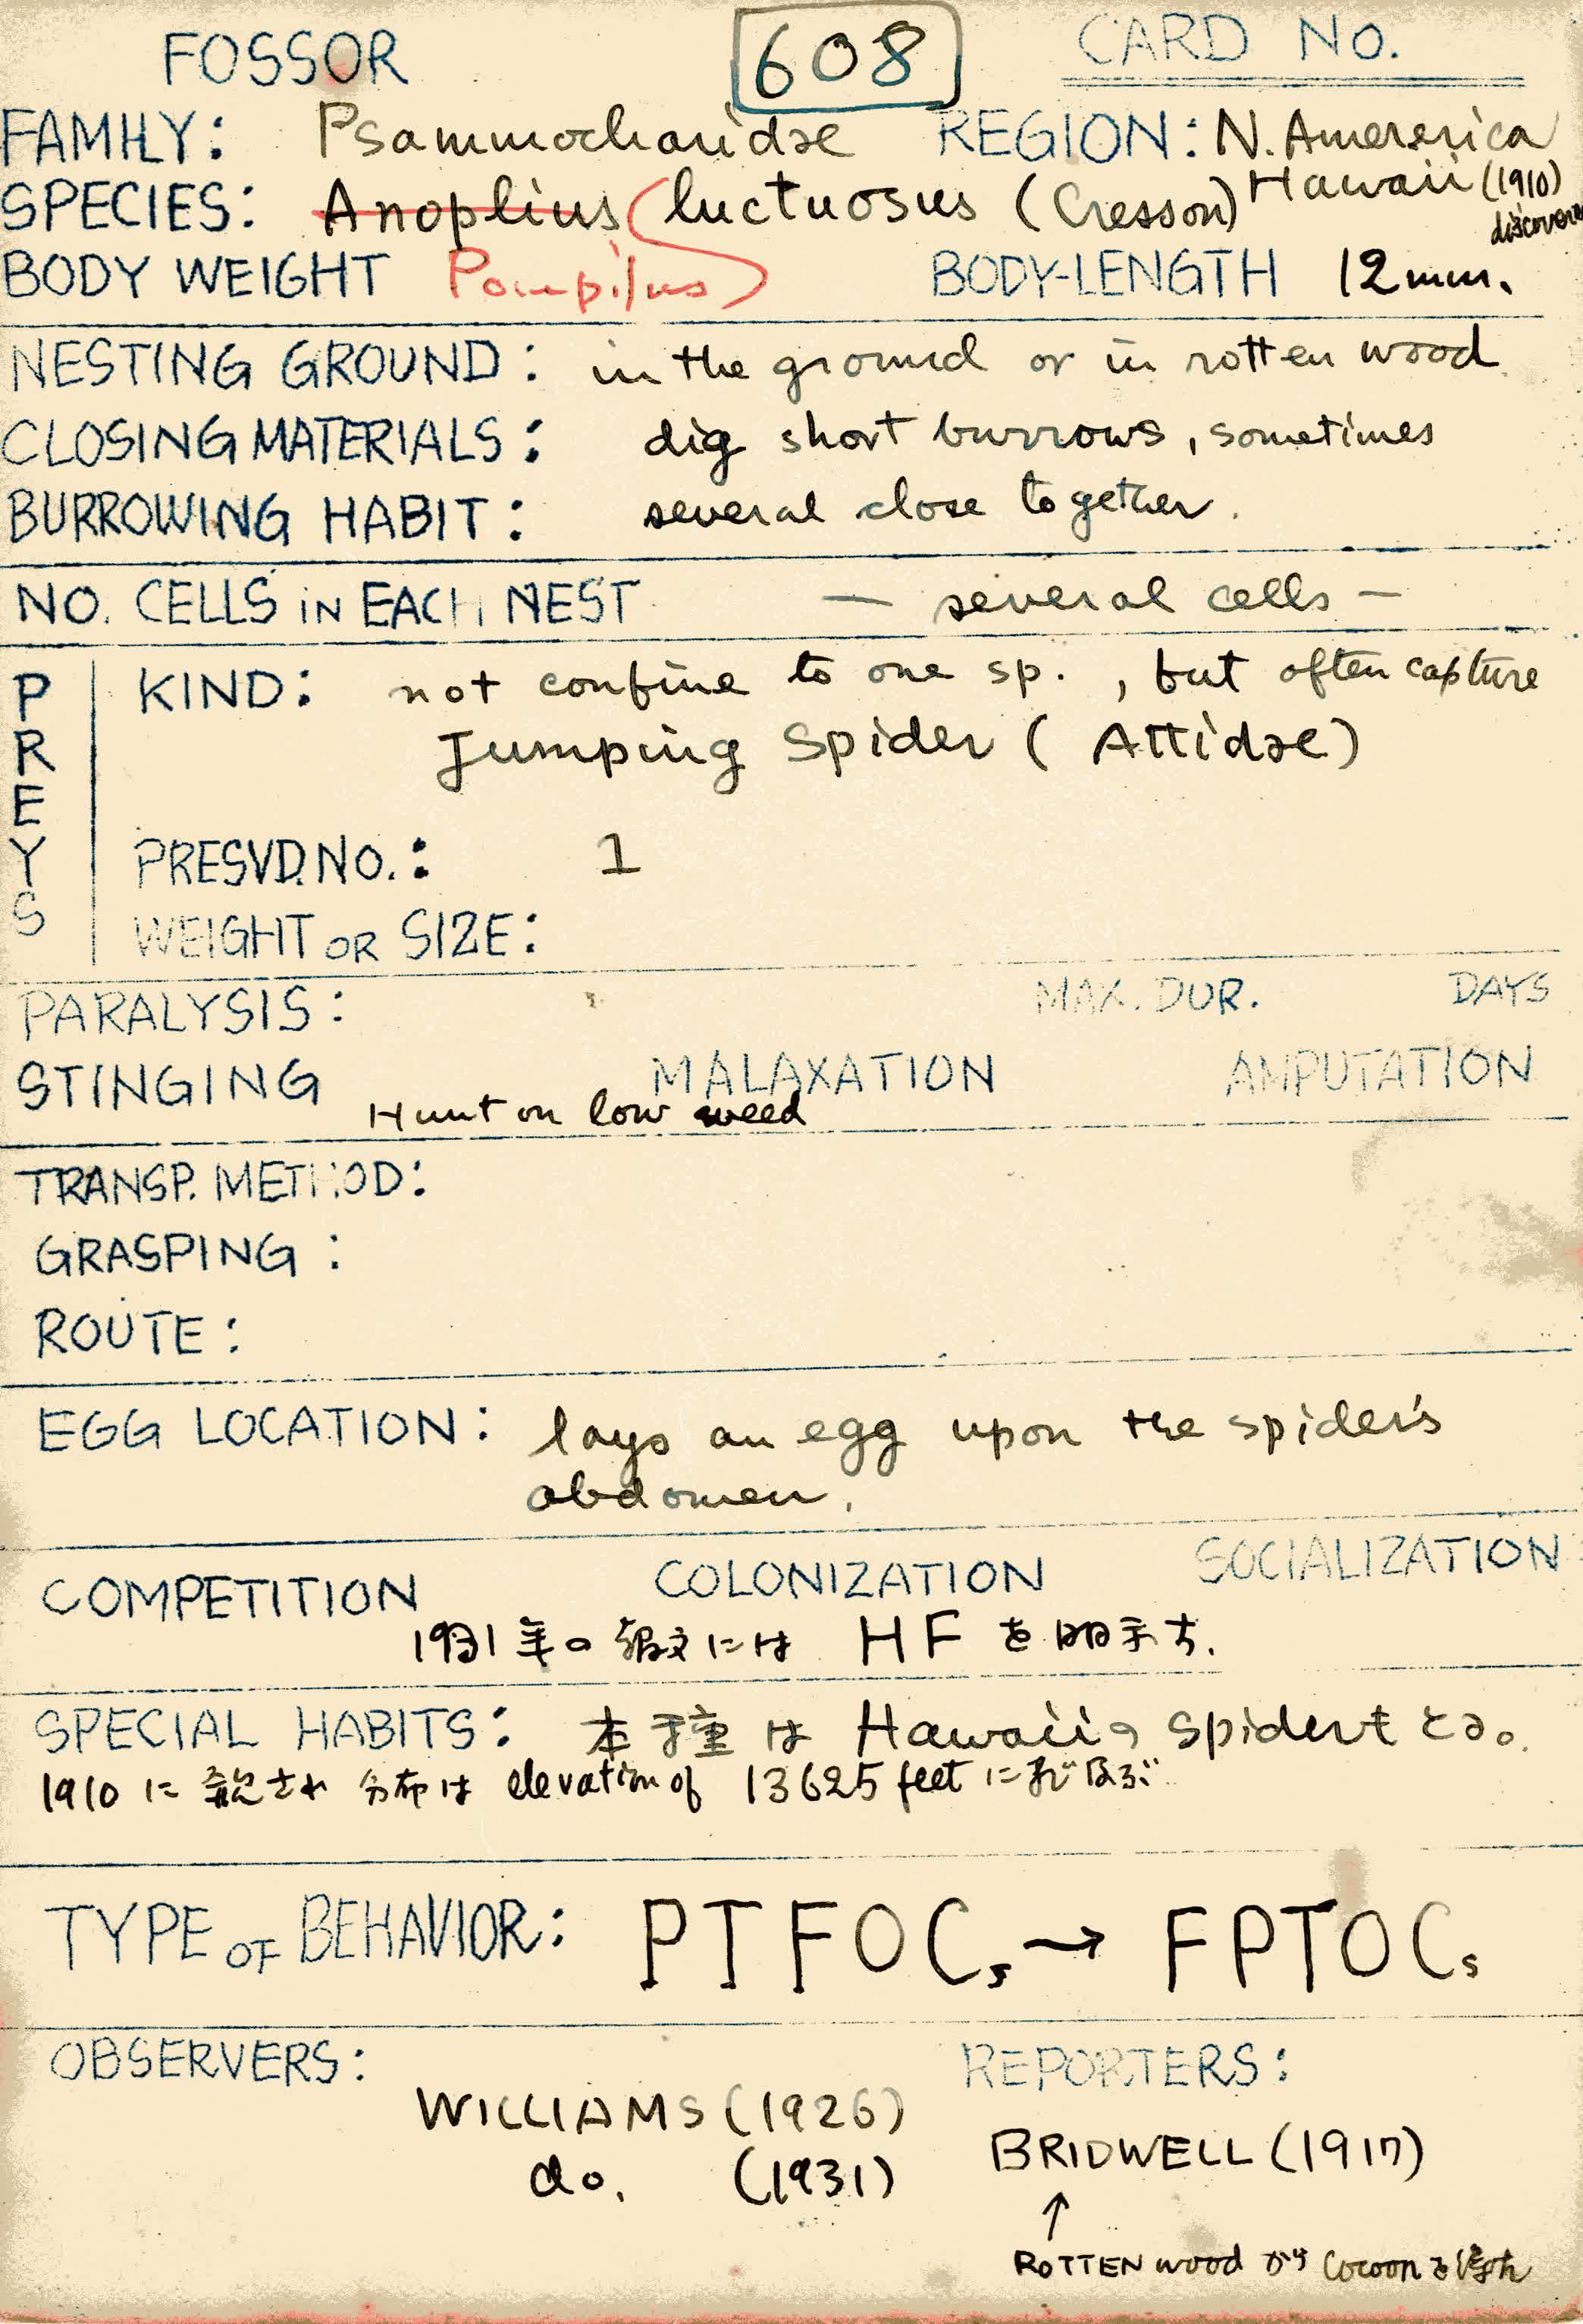 FOSSOR 608 CARD No.
FAMILY: Psammocharidae REGION: N. Amererica
SPECIES: Anoplius luctuosus (Cresson) Hawaii (1910)
discovered
BODY WEIGHT Pompilus BODY-LENGTH 12mm.
NESTING GROUND: in the ground or in rotten wood
CLOSING MATERIALS: dig short burrows, sometimes
BURROWING HABIT: several close together.
NO. CELLS IN EACH NEST — several cells —
PREYS
KIND: not confine to one sp., but often capture
Jumping Spider (Attidae)
PRESVD. NO.: 1
WEIGHT OR SIZE:
PARALYSIS: MAX. DUR. DAYS
STINGING MALAXATION AMPUTATION
Hunt on low weed
TRANSP. METHOD:
GRASPING:
ROUTE:
EGG LOCATION: lays an egg upon the spider's
abdomen.
COMPETITION COLONIZATION SOCIALIZATION
1931年の報文には HF を明示す.
SPECIAL HABITS: 本種は Hawaiiの spiderをとる。
1910 に され 分布は elevation of 13625 feet に及ぶ
TYPE OF BEHAVIOR: PTFOCs → FPTOCs
OBSERVERS: REPORTERS:
WILLIAMS (1926)
do. (1931)
BRIDWELL (1917)
↑
ROTTEN wood から Cocoon を得た